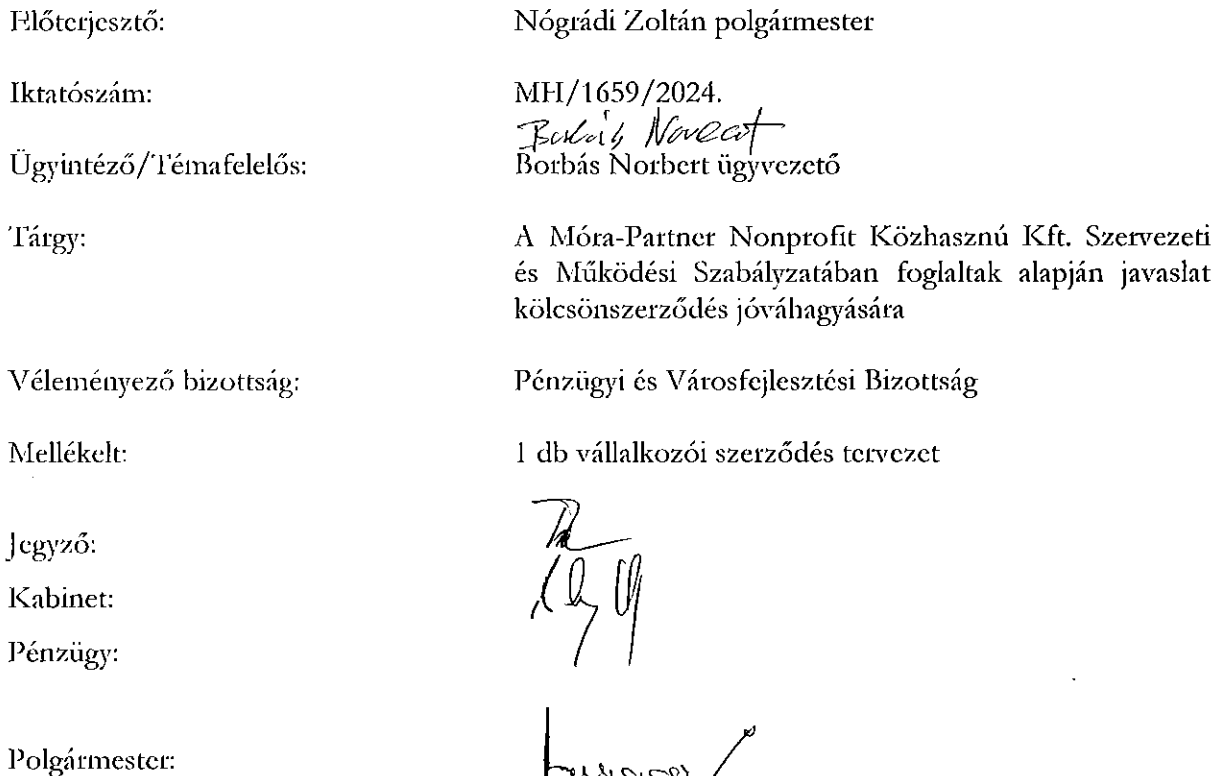 Előterjesztő: Nógrádi Zoltán polgármester
Iktatószám: MH/1659/2024.
Borbás Norbert
Ügyintéző/Témafelelős: Borbás Norbert ügyvezető
Tárgy: A Móra-Partner Nonprofit Közhasznú Kft. Szervezeti
és Működési Szabályzatában foglaltak alapján javaslat
kölcsönszerződés jóváhagyására
Véleményező bizottság: Pénzügyi és Városfejlesztési Bizottság
Mellékelt: 1 db vállalkozói szerződés tervezet
Jegyző:
Kabinet:
Pénzügy:
Polgármester: